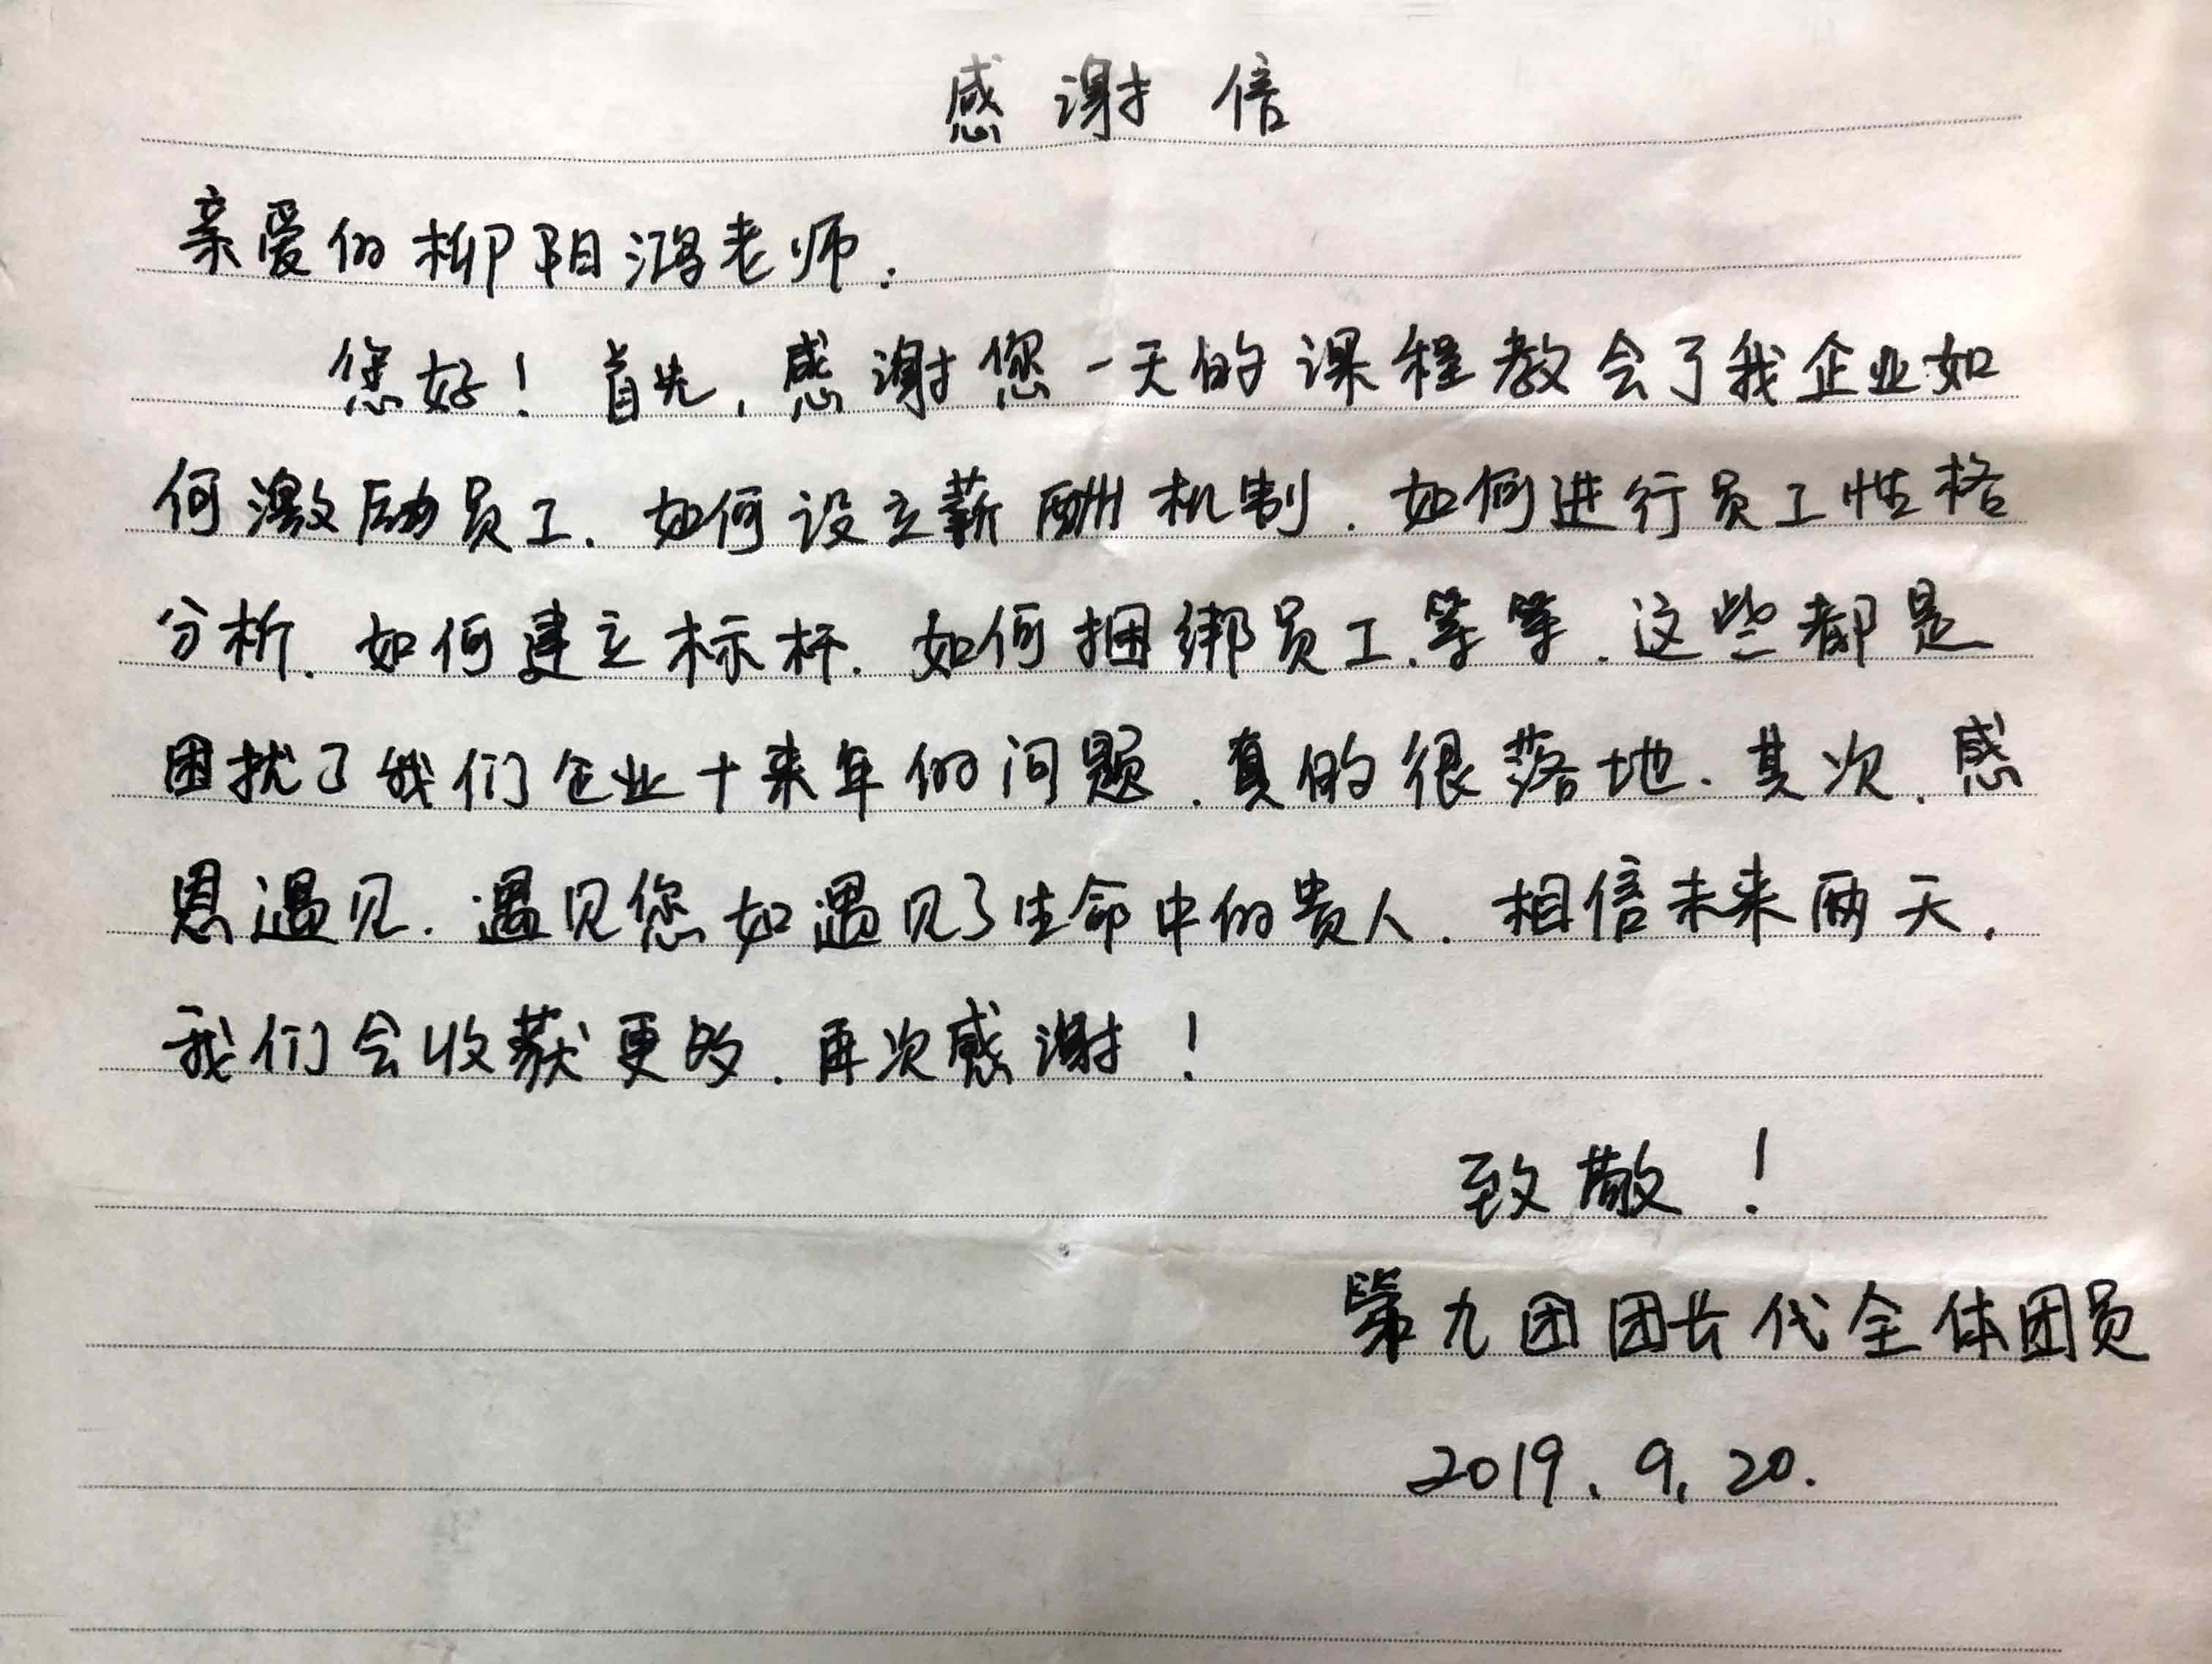 感谢信
亲爱的柳阳鸿老师:
您好!首先,感谢您一天的课程教会了我企业如
何激励员工.如何设立薪酬机制.如何进行员工性格
分析.如何建立标杆.如何捆绑员工.等等.这些都是
困扰了我们企业十来年的问题.真的很落地.其次.感
恩遇见.遇见您如遇见了生命中的贵人.相信未来两天.
我们会收获更多.再次感谢!
致敬!
第九团团长代全体团员
2019.9.20.